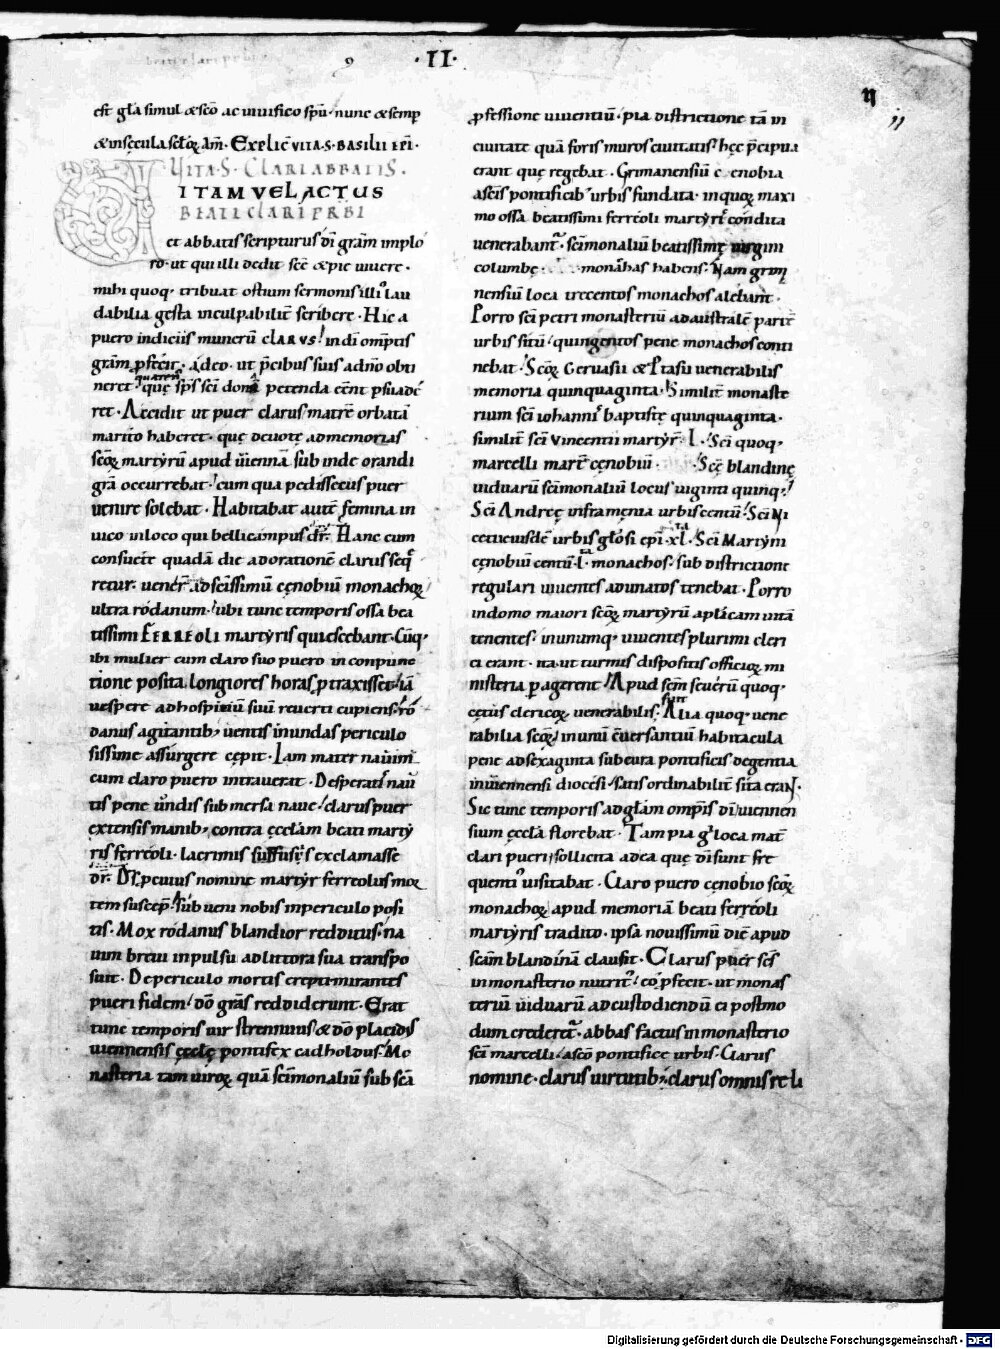 ·II·
est gl̄a simul & sc̄o ac uiuifico sp̄u· nunc & semp
& in sęcula scl̄oꝝ Am̄· Explic̄ VITA·S·BASILII EP̄I·
VITA·S·CLARI ABBATIS·
ITAM VEL ACTUS
BEATI CLARI PRBI
et abbatis scripturus dī gram̄ implo
ro· ut qui illi dedit sc̄e & pie uiuere·
mihi quoq· tribuat ostium sermonis illiꝰ lau
dabilia gesta inculpabilit̄ scribere· Hic a
puero indiciis munerū CLARVS! in dī om̄ptis
gram̄ ꝓfecit· Adeo· ut p̄cibus suis ad n̄o obti
neret· quę sp̄s sc̄i dona petenda
ret· Accidit ut puer clarus matrē orbatā
marito haberet· quę deuotę ad memorias
sc̄oꝝ martyrū apud uiennā sub inde orandi
grā occurrebat! cum qua pedissecus puer
uenire solebat· Habitabat autē femina in
uico in loco qui bellicampus dr̄· Hanc cum
consuete quadā die adorationē clarus seq̄
retur· uener̄ ad sc̄issimū cęnobiū monachoꝝ
ultra rodanum! ubi tunc temporis ossa bea
tissimi FERREOLI martyris quiescebant· Cūq·
ibi mulier cum claro suo puero in conpunc
tione posita longiores horas ꝓtraxisset! iā
uespere ad hospitiū suū reuerti cupiens! ro
danus agitantib; uentis inundas periculo
sissime assurgere cępit· Iam mater nauim
cum claro puero intrauerat· Desperatis nau
tis pene undis submersa naue! clarus puer
extensis manib; contra ęccl̄am beati marty
ris ferreoli· lacrimis suffusus exclamasse
dr̄· Dī, p cuius nomine martyr ferreolus moꝝ
tem suscep̄! subueni nobis in periculo posi
tis· Mox rodanus blandior redditus· na
uim breui inpulsu ad littora sua transpo
suit· De periculo mortis erepti mirantes
pueri fidem! dō gras reddiderunt· Erat
tunc temporis uir strennuus & dō placidus
uiennensis ęccl̄ę pontifex cadholdus· Mo
nasteria tam uiroꝝ quā sc̄imonaliū sub sc̄a
II
11
ꝓfessione uiuentiū· pia districtione tā in
ciuitate quā foris muros ciuitatis! hęc p̄cipua
erant quę regebat· Grimanensiū cenobia
asc̄is pontificib; urbis fundata· in quoꝝ maxi
mo ossa beatissimi ferreoli martyr̄ condita
uenerabant̄· sc̄imonaliū beatissimę uirgini
columbę· monachas habens· Nam grin
nensiū loca trecentos monachos alebant·
Porro sc̄i petri monasteriū ad australē partē
urbis sitū! quingentos pene monachos conti
nebat! Sc̄oꝝ Geruasii & Ptasii uenerabilis
memoria quinquaginta· Similit̄ monaste
rium sc̄i iohannis baptistę quinquaginta·
similit̄ sc̄i Vincentii martyr̄· L· Sc̄i quoq·
marcelli mart̄ cęnobiū· Sc̄ę blandinę
uiduarū sc̄imonaliū locus uiginti quinq·
Sc̄i Andreę inframęnia urbis centū! Sc̄i Ni
cetii eiusdē urbis gl̄osi ep̄i· xl· Sc̄i Martyni
cęnobiū centū· L· monachos· sub districtione
regulari uiuentes adunatos tenebat· Porro
in domo maiori sc̄oꝝ martyrū apl̄icam uitā
tenentes· in unumq· uiuentes plurimi cleri
ci erant· ita ut turmis dispositis officioꝝ mi
nisteria p̱agerent! Apud sc̄m seuerū quoq·
cętus clericoꝝ uenerabilis· Alia quoq· uene
rabilia sc̄oꝝ in unū c̄uersantiū habitacula
pene ad sexaginta sub cura pontificis degentia
in uiennensi diocesi! satis ordinabilit̄ sita eran̄t·
Sic tunc temporis ad gl̄am om̄pis dī uiennen
sium ęccl̄a florebat· Tam pia gͥ loca mat̄
clari pueri sollicita ad ea quę dī sunt fre
quentiꝰ uisitabat· Claro puero cęnobio sc̄oꝝ
monachoꝝ apud memoriā beati ferreoli
martyris tradito· ipsa nouissimū diē apud
sc̄am blandinā clausit· Clarus puer sc̄s
in monasterio nutritꝰ! eo ꝓfecit· ut monas
teriū uiduarū ad custodiendū ei postmo
dum crederet̄· abbas factus in monasterio
sc̄i marcelli! a sc̄o pontifice urbis· Clarus
nomine· clarus uirtutib; clarus omnis reli
Digitalisierung gefördert durch die Deutsche Forschungsgemeinschaft - DFG